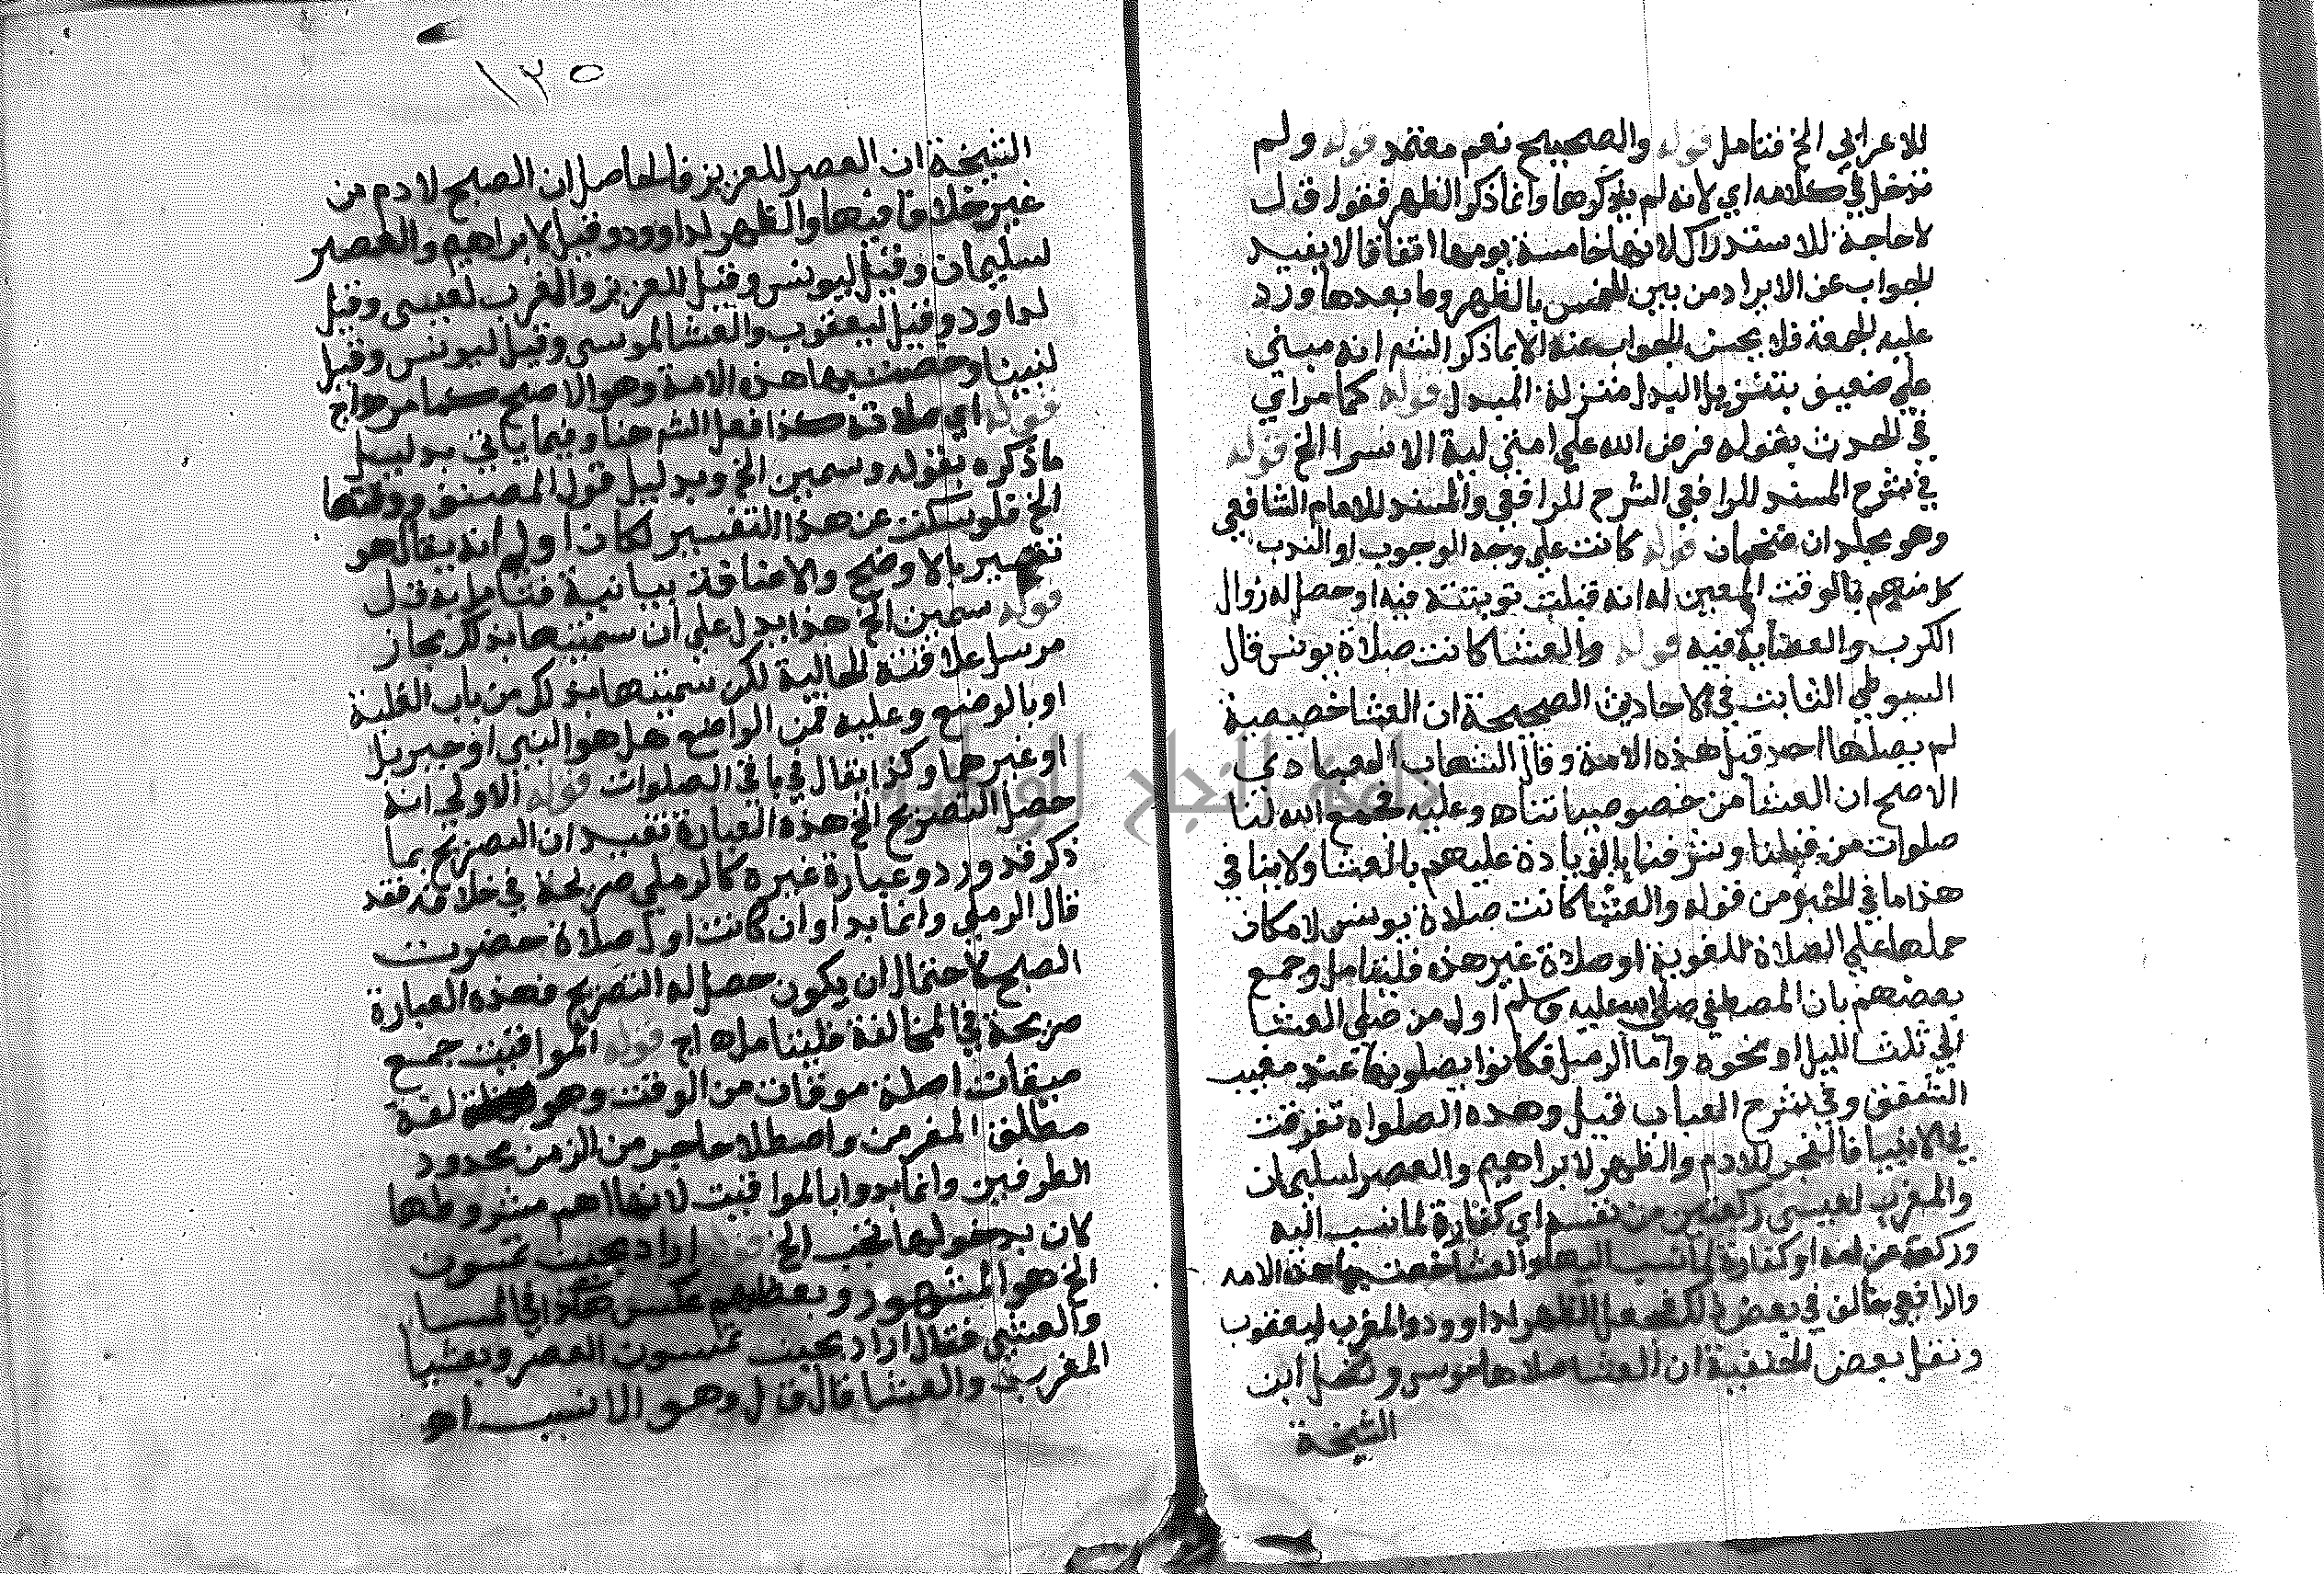 للاعرابي الخ فتامل قوله والصحيح نعم معتمد قوله ولم
تدخل في كلامه اي لانه لم يذكرها وانما ذكر الظهر فقول ق ل
لا حاجة للاستدراك لانها خامسة يومها اتفاقا لا يفيد
الجواب عن الايراد من بين الخمس بالظهر وما بعدها ورد
عليه الجمعة فلا يحسن الجواب عنه الا بما ذكر الشم انه مبني
علي ضعيف بتنزيل البدل منزلة المبدل قوله كما مر اي
في الحدث بقوله فرض الله علي امتي ليلة الاسرا الخ قوله
في شرح المسند للرافعي الشرح للرافعي والمسند للامام الشافعي
وهو مجلدان ضخمان قوله كانت علي وجه الوجوب او الندب
كل منهم بالوقت المعين له انه قبلت توبته فيه او حصل له زوال
الكرب والعضاية فيه قوله والعشا كانت صلاة يونس قال
السيوطي الثابت في الاحاديث الصحيحة ان العشا خصيصية
لم يصلها احد قبل هذه الامة وقال الشهاب العبادي
الاصح ان العشا من خصوصياتنا اه وعليه فجمع الله لنا
صلوات من قبلنا وشرفنا بالزيادة عليهم بالعشا ولا ينافي
هذا ما في الخبر من قوله والعشا كانت صلاة يونس لامكان
حملها علي الصلاة اللغوية او صلاة غير هذه فليتامل وجمع
بعضهم بان المصطفي صلي الله عليه وسلم اول من صلي العشا
الي ثلث الليل او نحوه واما الرسل فكانوا يصلونها عند مغيب
الشفق وفي شرح العباب قيل وهذه الصلواه تفرقت
في الانبيا فالفجر للادم والظهر لابراهيم والعصر لسليمان
والمغرب لعيسي ركعتين عن نفسه اي كفارة لما نسب اليه
وركعة عن امه او كفارة لما نسب اليها والعشا خصت بها هذه الامه
والرافعي خالف في بعض ذلك فجعل الظهر لداوود والمغرب ليعقوب
ونقل بعض الحنفية ان العشا صلاها موسي ونقل ابن
الشيخة
١٣٥
الشيخة ان العصر للعزيز فالحاصل ان الصبح لادم من
غير خلاف فيها والظهر لداوود وقيل لابراهيم والعصر
لسليمان وقيل ليونس وقيل للعزيز والمغرب لعيسي وقيل
لداود وقيل ليعقوب والعشا لموسي وقيل ليونس وقيل
لنبينا وخصت بها هذه الامة وهو الاصح كما مر اه اج
قوله اي صلاته كذا فعل الشم هنا وفيما ياتي بدليل
ما ذكره بقوله وسمين الخ وبدليل قول المصنف ووقتها
الخ فلو سكت عن هذا التفسير لكان اولي انه يقال هو
تفسير بالاوضح والاضافة بيانية فتامل به ق ل
قوله سمين الخ هذا يدل علي ان سميتها بذلك مجاز
مرسل علاقته الحالية لكن سميتها بذلك من باب الغلبة
او بالوضع وعليه فمن الواضع هل هو النبي او جبريل
او غيرهما وكذا يقال في باقي الصلوات قوله الاولي انه
حصل التصريح الخ هذه العبارة تفيد ان التصريح بما
ذكر قد ورد وعبارة غيره كالرملي صريحة في خلافه فقد
قال الرملي وانما بدا وان كانت اول صلاة حضرت
الصبح لاحتمال ان يكون حصل له التصريح فهذه العبارة
صريحة في المخالفة فليتامل اه اج قوله المواقيت جمع
ميقات اصله موقات من الوقت وهو لغة
مطلق الزمن واصطلاحا جز من الزمن محدود
الطرفين وانما بدوا بالمواقيت لانها اهم شروطها
كان بدخولها تجب الخ قوله اراد بحين تمسون
الخ هو المشهور وبعضهم عكس هكذا في المسا
والعشي فقال اراد بحين تمسون العصر وبعشيا
المغرب والعشا قال ق ل وهو الانسب اه
جامعة النجاح الوطنية